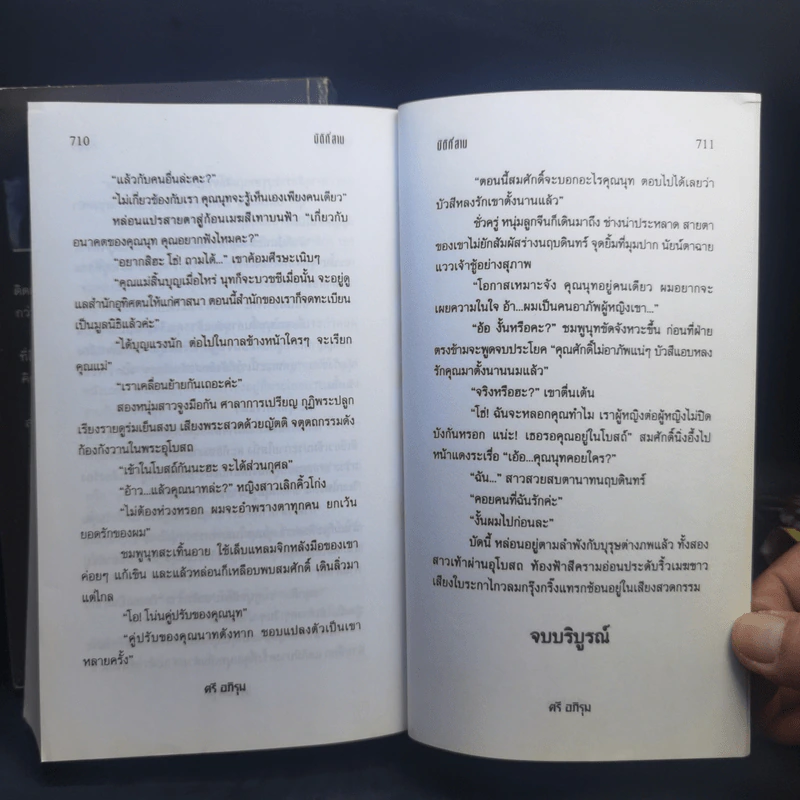 710
มิติที่สาบ
“แล้วกับคนอื่นล่ะคะ?”
“ไม่เกี่ยวข้องกับเรา คุณนุทจะรู้เห็นเองเพียงคนเดียว”
หล่อนแปรสายตาสู่ก้อนเมฆสีเทาบนฟ้า “เกี่ยวกับ
อนาคตของคุณนุท คุณอยากฟังไหมคะ?”
“อยากสิฮะ โธ่! ถามได้...” เขาค้อมศีรษะเนิบๆ
“คุณแม่สิ้นบุญเมื่อไหร่ นุทก็จะบวชชีเมื่อนั้น จะอยู่ดู
แลสำนักอุทิศตนให้แก่ศาสนา ตอนนี้สำนักของเราก็จดทะเบียน
เป็นมูลนิธิแล้วค่ะ”
“ได้บุญแรงนัก ต่อไปในกาลข้างหน้าใครๆ จะเรียก
คุณแม่”
“เราเคลื่อนย้ายกันเถอะค่ะ”
สองหนุ่มสาวจูงมือกัน ศาลาการเปรียญ กุฏิพระปลูก
เรียงรายดูร่มเย็นสงบ เสียงพระสวดด้วยญัตติ จตุตถกรรมดัง
ก้องกังวานในพระอุโบสถ
“เข้าในโบสถ์กันนะฮะ จะได้ส่วนกุศล”
“อ้าว...แล้วคุณนาทล่ะ?” หญิงสาวเลิกคิ้วโก่ง
“ไม่ต้องห่วงหรอก ผมจะอำพรางตาทุกคน ยกเว้น
ยอดรักของผม”
ชมพูนุทสะเทิ้นอาย ใช้เล็บแหลมจิกหลังมือของเขา
ค่อยๆ แก้เขิน และแล้วหล่อนก็เหลือบพบสมศักดิ์ เดินลิ่วมา
แต่ไกล
“โอ! โน่นคู่ปรับของคุณนุท”
“คู่ปรับของคุณนาทดังหาก ชอบแปลงตัวเป็นเขา
หลายครั้ง”
ศรี อภิรุม
มิติที่สาบ
711
“ตอนนี้สมศักดิ์จะบอกอะไรคุณนุท ตอบไปได้เลยว่า
บัวสีหลงรักเขาตั้งนานแล้ว”
ชั่วครู่ หนุ่มลูกจีนก็เดินมาถึง ช่างน่าประหลาด สายตา
ของเขาไม่ยักสัมผัสร่างนฤบดินทร์ จุดยิ้มที่มุมปาก นัยน์ตาฉาย
แววเจ้าชู้อย่างสุภาพ
“โอกาสเหมาะจัง คุณนุทอยู่คนเดียว ผมอยากจะ
เผยความในใจ อ้า...ผมเป็นคนอาภัพผู้หญิงเขา...”
“อ้อ งั้นหรือคะ?” ชมพูนุทขัดจังหวะขึ้น ก่อนที่ฝ่าย
ตรงข้ามจะพูดจบประโยค “คุณศักดิ์ไม่อาภัพแน่ๆ บัวสีแอบหลง
รักคุณมาตั้งนานนมแล้ว”
“จริงหรือฮะ?” เขาตื่นเต้น
“โธ่! ฉันจะหลอกคุณทำไม เราผู้หญิงต่อผู้หญิงไม่ปิด
บังกันหรอก แน่ะ! เธอรอคุณอยู่ในโบสถ์” สมศักดิ์นิ่งอึ้งไป
หน้าแดงระเรื่อ “เอ้อ...คุณนุทคอยใคร?”
“ฉัน...” สาวสวยสบตานาทนฤบดินทร์
“คอยคนที่ฉันรักค่ะ”
“งั้นผมไปก่อนละ”
บัดนี้ หล่อนอยู่ตามลำพังกับบุรุษต่างภพแล้ว ทั้งสอง
สาวเท้าผ่านอุโบสถ ท้องฟ้าสีครามอ่อนประดับริ้วเมฆขาว
เสียงใบระกาไกวลมกรุ๊งกริ๊งแทรกซ้อนอยู่ในเสียงสวดกรรม
จบบริบูรณ์
ศรี อภิรุม